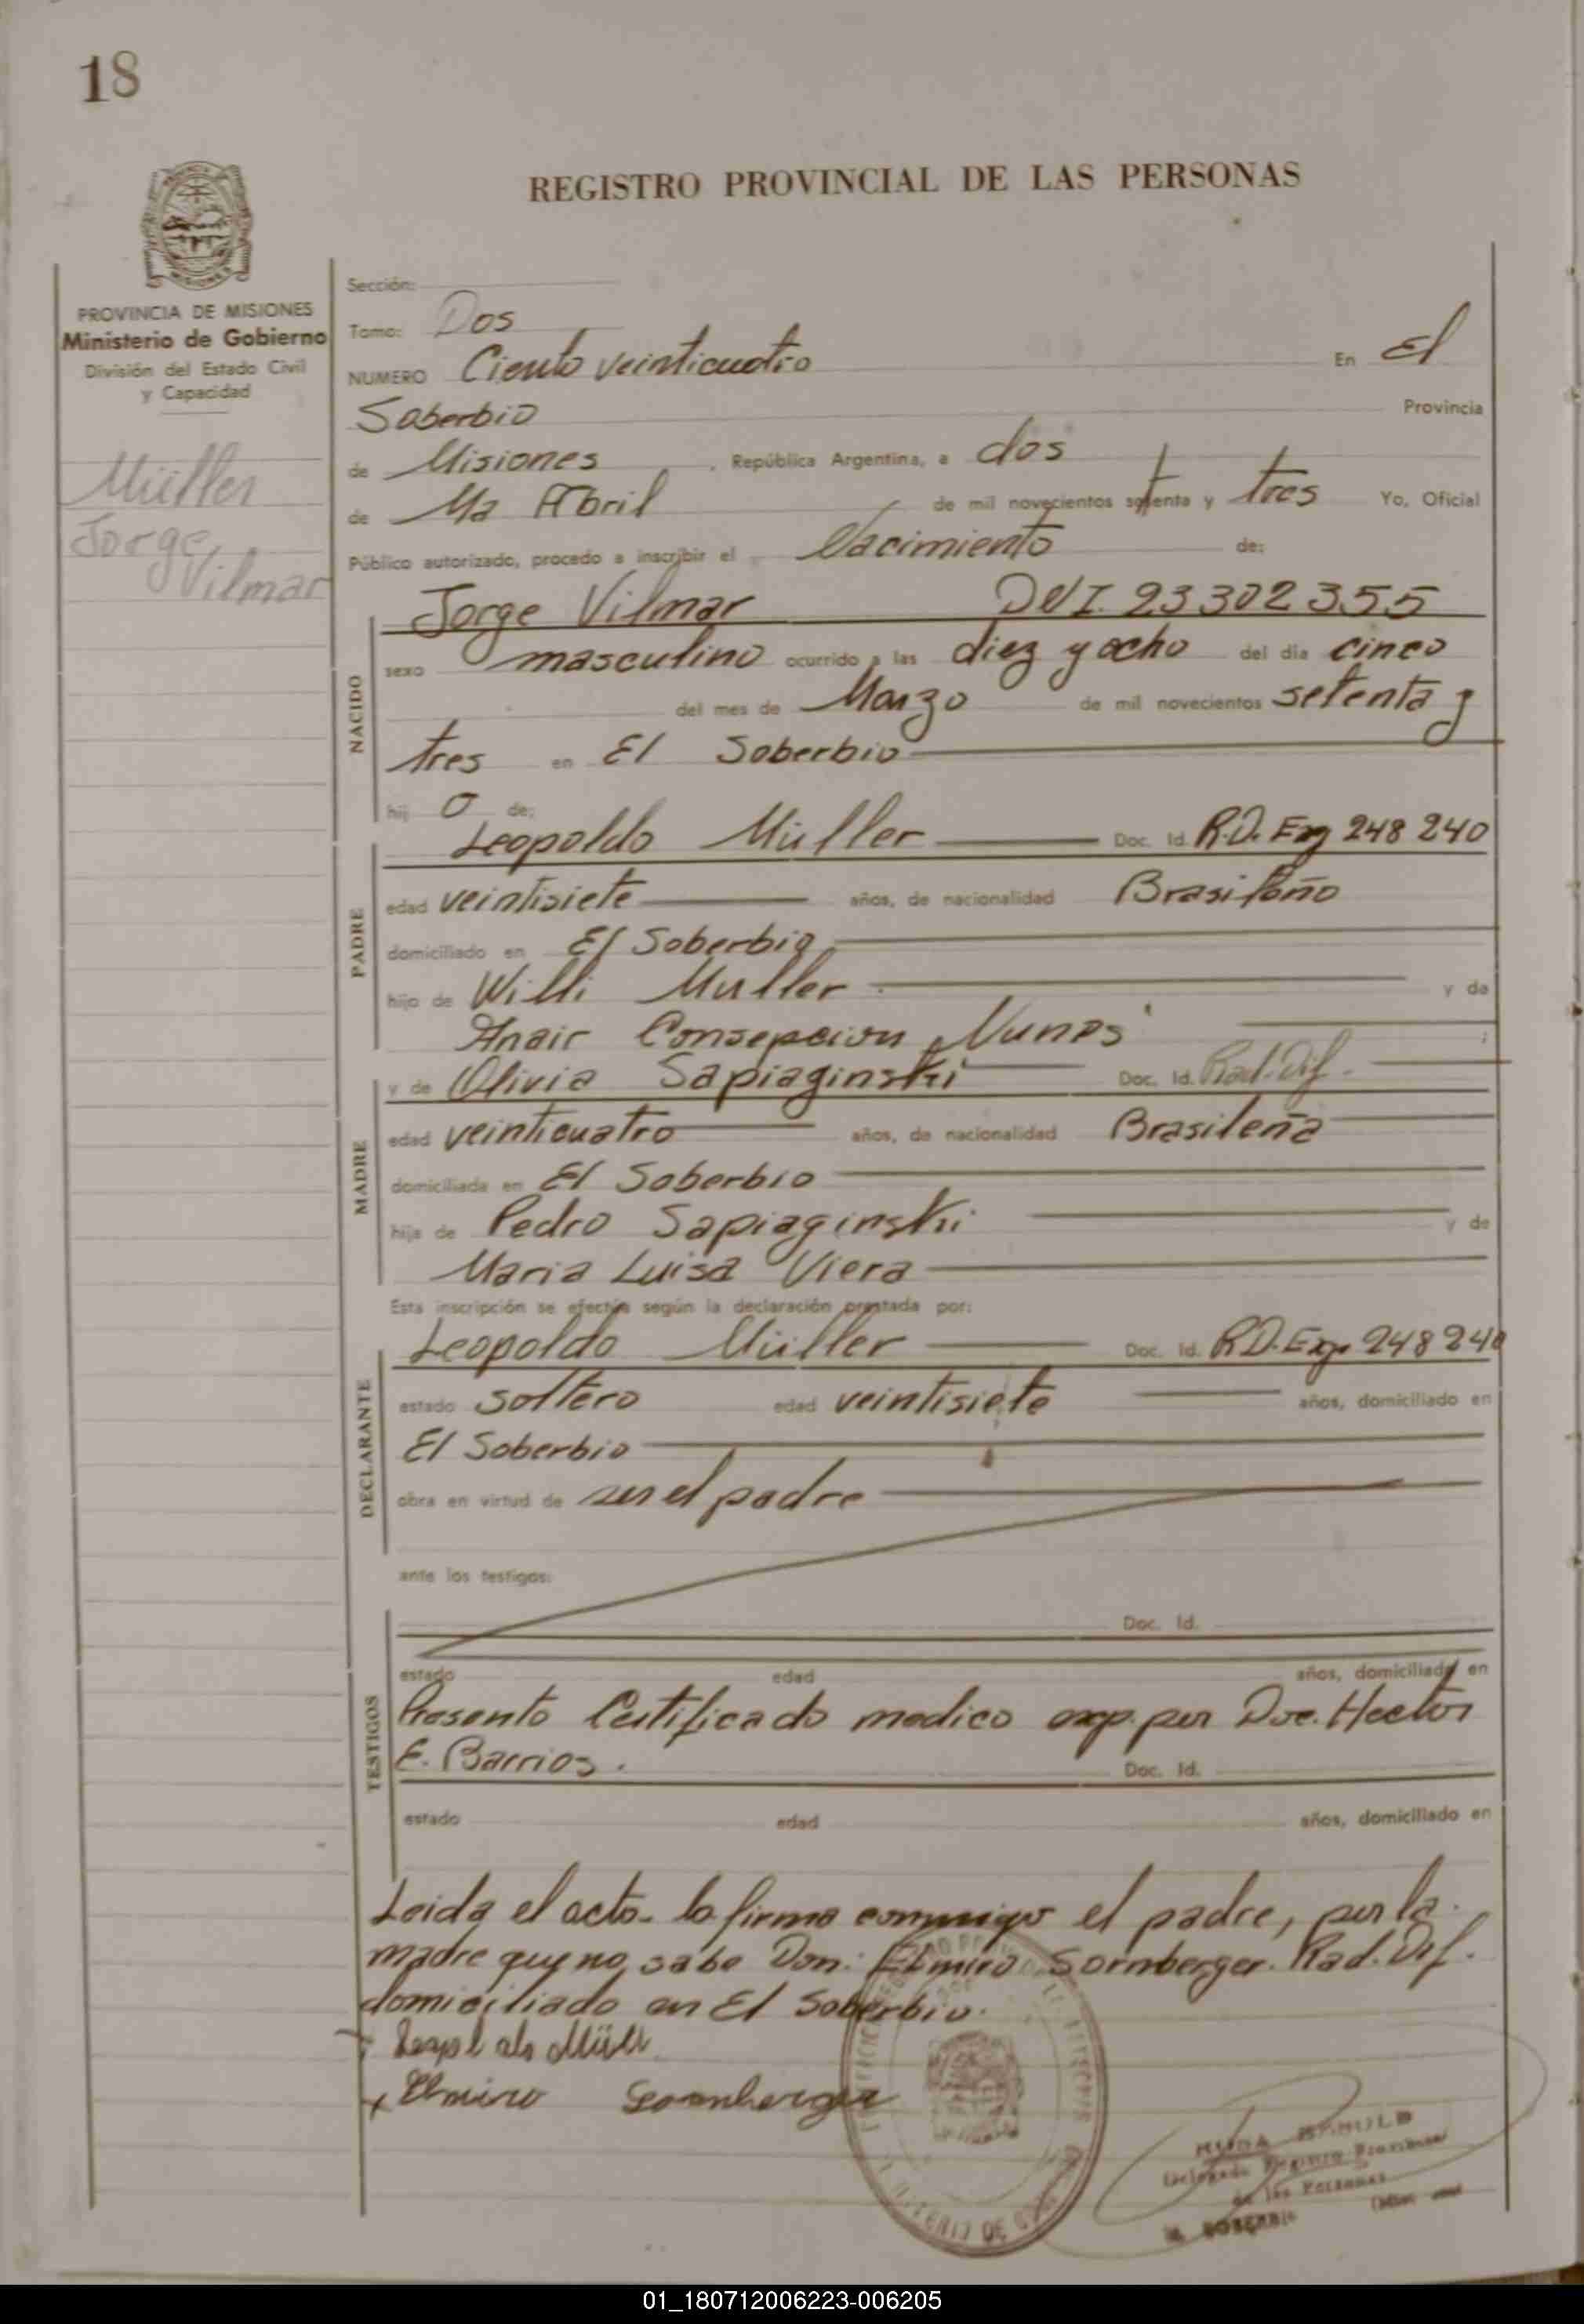 18
REGISTRO PROVINCIAL DE LAS PERSONAS
PROVINCIA DE MISIONES
Ministerio de Gobierno
División del Estado Civil
y Capacidad
Müller
Jorge
Vilmar
Sección:
Tomo: Dos
NUMERO Ciento veinticuatro En El
Soberbio Provincia
de Misiones, República Argentina, a dos
de Ma Abril de mil novecientos setenta y tres Yo, Oficial
Público autorizado, procedo a inscribir el Nacimiento de:
NACIDO
Jorge Vilmar DNI. 23302355
sexo masculino ocurrido a las diez y ocho del día cinco
del mes de Marzo de mil novecientos setenta y
tres en El Soberbio
hij o de:
PADRE
Leopoldo Müller Doc. Id. R.D. Exp 248240
edad veintisiete años, de nacionalidad Brasileño
domiciliado en El Soberbio
hijo de Willi Muller y de
Anair Consepcion Nunes ;
MADRE
y de Olivia Sapiaginski Doc. Id. Rad. Dif.
edad veinticuatro años, de nacionalidad Brasileña
domiciliada en El Soberbio
hija de Pedro Sapiaginski y de
Maria Luisa Viera
Esta inscripción se efectúa según la declaración prestada por:
DECLARANTE
Leopoldo Müller Doc. Id. R.D. Exp. 248240
estado soltero edad veintisiete años, domiciliado en
El Soberbio
obra en virtud de ser el padre
ante los testigos:
TESTIGOS
Doc. Id.
estado edad años, domiciliado en
Presento Certificado medico exp. por Doc. Hector
E. Barrios. Doc. Id.
estado edad años, domiciliado en
Leida el acto. la firma conmigo el padre, por la
madre que no sabe Don: Elmiro Sornberger. Rad. Dif.
domiciliado en El Soberbio.
Elmiro Sornberger
Delegado Registro Provincial
de las Personas
EL SOBERBIO
01_180712006223-006205